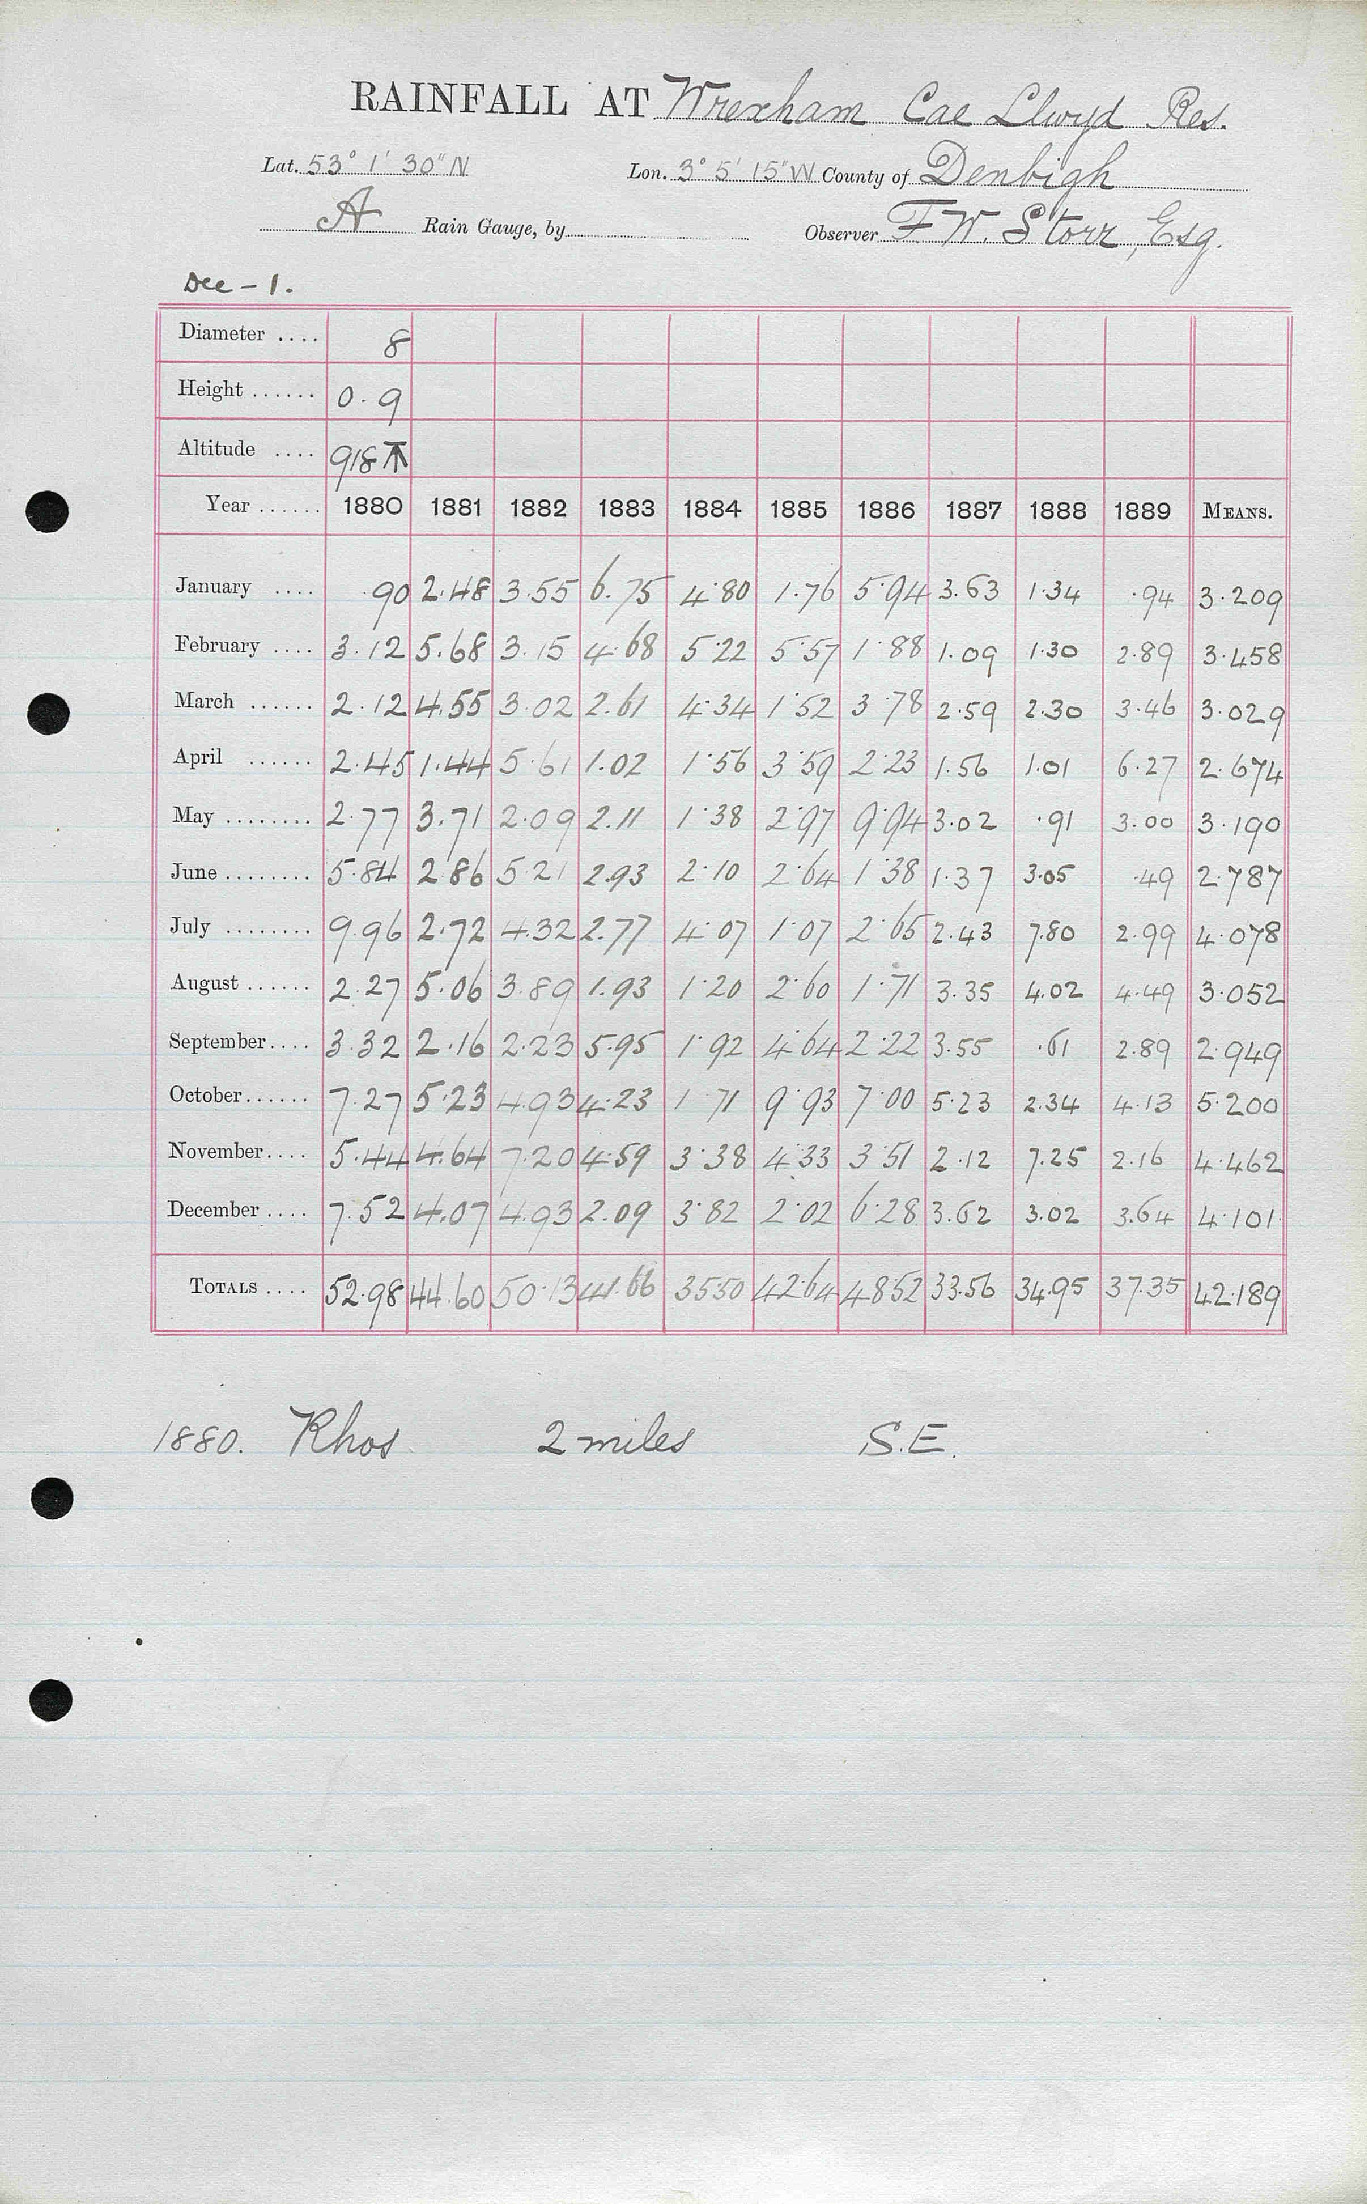 RAINFALL AT Wrexham Cae Llwyd Res.
Lat. 53° 1' 30" N Lon. 3° 5' 15" W County of Denbigh
A Rain Gauge, by Observer F. W. Storr, Esq.
Dec - 1.
Diameter .... 8
Height ...... 0.9
Altitude .... 918
Year ...... 1880 1881 1882 1883 1884 1885 1886 1887 1888 1889 MEANS.
January .... .90 2.48 3.55 6.75 4.80 1.76 5.94 3.63 1.34 .94 3.209
February .... 3.12 5.68 3.15 4.68 5.22 5.57 1.88 1.09 1.30 2.89 3.458
March ...... 2.12 4.55 3.02 2.61 4.34 1.52 3.78 2.59 2.30 3.46 3.029
April ...... 2.45 1.44 5.61 1.02 1.56 3.59 2.23 1.56 1.01 6.27 2.674
May ........ 2.77 3.71 2.09 2.11 1.38 2.97 9.94 3.02 .91 3.00 3.190
June ........ 5.84 2.86 5.21 2.93 2.10 2.64 1.38 1.37 3.05 .49 2.787
July ........ 9.96 2.72 4.32 2.77 4.07 1.07 2.65 2.43 7.80 2.99 4.078
August ...... 2.27 5.06 3.89 1.93 1.20 2.60 1.71 3.35 4.02 4.49 3.052
September .... 3.32 2.16 2.23 5.95 1.92 4.64 2.22 3.55 .61 2.89 2.949
October ...... 7.27 5.23 4.93 4.23 1.71 9.93 7.00 5.23 2.34 4.13 5.200
November .... 5.44 4.64 7.20 4.59 3.38 4.33 3.51 2.12 7.25 2.16 4.462
December .... 7.52 4.07 4.93 2.09 3.82 2.02 6.28 3.62 3.02 3.64 4.101
TOTALS .... 52.98 44.60 50.13 41.66 35.50 42.64 48.52 33.56 34.95 37.35 42.189
1880. Rhos 2 miles S.E.